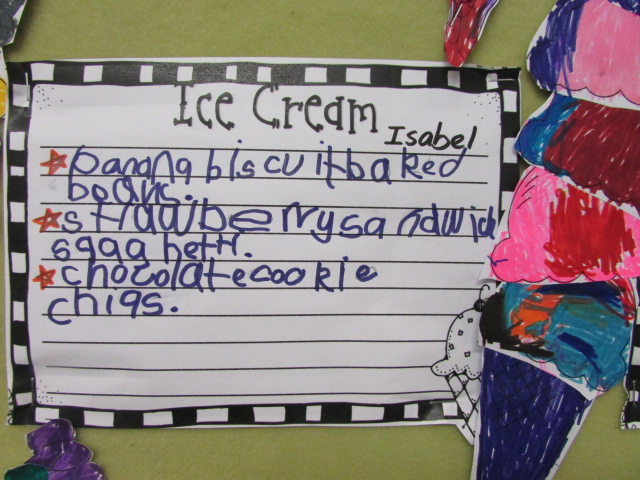 Ice Cream
Isabel
banana biscuit baked
beans.
strawberry sandwich
sgaghetti.
chocolate cookie
chigs.